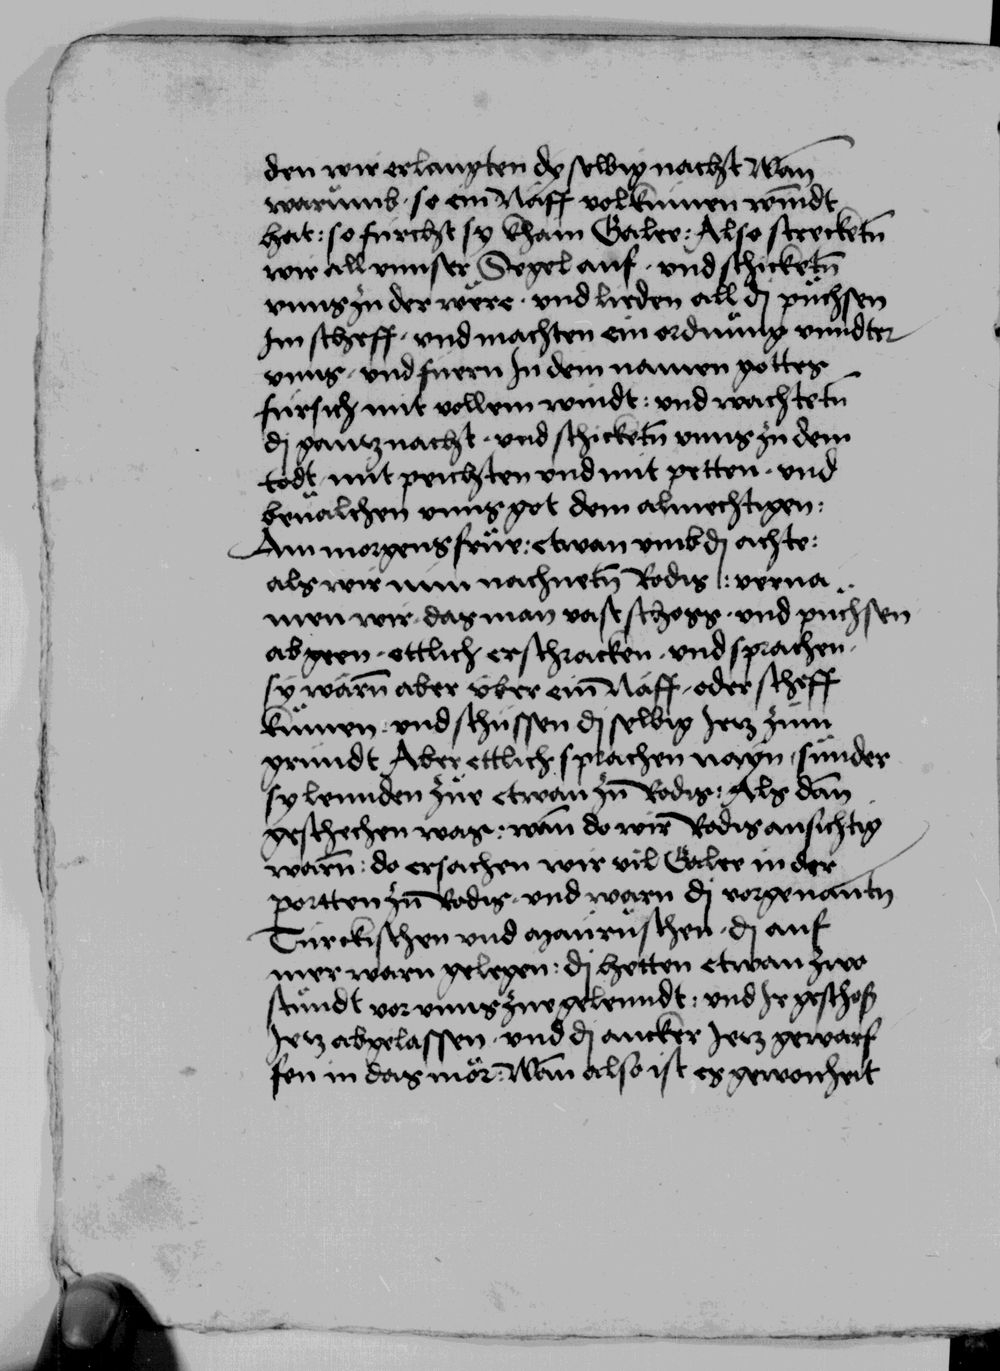 den wir erlangten dy selbig nacht Wan̄
warumb · so ein Naff volkumen windt
hat : so furcht sy kham Galee : Also strecketn̄
wir all vnnser Segel auf · vnd schicketn̄
vnns zu der were · vnd lieden all dj puchsen
Im scheff · vnd machten ein ordnung vnndter
vnns · vnd fuern In dem namen gottes
fursich mit vollem windt : vnd wachtetn̄
dj gantz nacht · vnd schicketn̄ vnns zu dem
todt mit peichten vnd mit petten · vnd
beualchen vnns got dem almechtigen :
Am morgens frue : etwan vmb dj achte :
als wir nun nachnetn̄ Rodis : verna
men wir · das man vast schoss · vnd puchsen
ab geen · ettlich erschracken · vnd sprachen ·
sy warn̄ aber vber ein Naff · oder scheff
kumen : vnd schussen dj selbig Jetz zum
grundt Aber ettlich sprachen nayn · sunder
sy lennden zue etwan zu Rodis : Als dan̄
geschechen was : wan̄ do wir Rodis ansichtig
warn̄ : do ersachen wir vil Galee in der
portten zu Rodis · vnd warn dj vorgenantn̄
Turckischen vnd Mauruschen · dj auf
mer warn gelegen : dj hetten etwan zwo
stundt vor vnns zue gelenndt : vnd Ir geschoß
Jetz abgelassen · vnd dj ancker Jetz geworf
fen in das mör : Wan̄ also ist es gewonheit